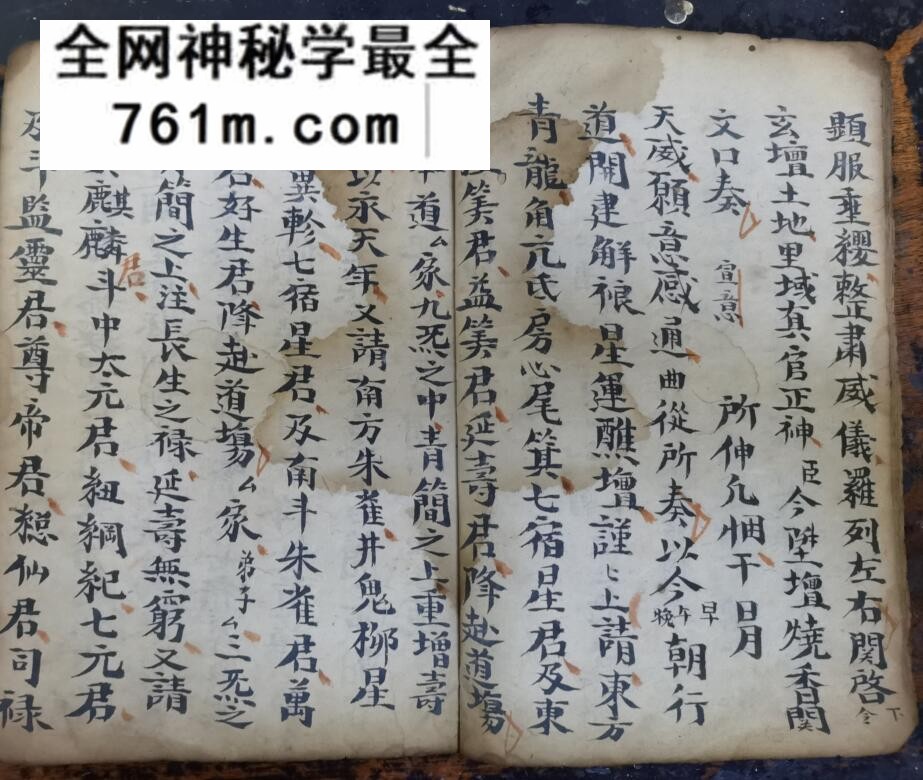 全网神秘学最全
761m.com
顕服垂纓整肅威儀羅列左右関啓 下全
玄壇土地里域真官正神臣今陞壇燒香関
文口奏 宣意 所伸凡悃干日月
天威願意感通曲從所奏以今早午晚朝行
道開建解禳星運醮壇謹〻上請東方
青龍角亢氐房心尾箕七宿星君及東
筭君益筭君延壽君降赴道塲
道厶家九炁之中青簡之上重增壽
以永天年又請南方朱雀井鬼柳星
翼軫七宿星君及南斗朱雀君萬
君好生君降赴道塲厶家弟子厶三炁之
簡之上注長生之禄延壽無窮又請
麒麟君斗中太元君紐綱紀七元君
及斗監靈君尊帝君揔仙君司禄